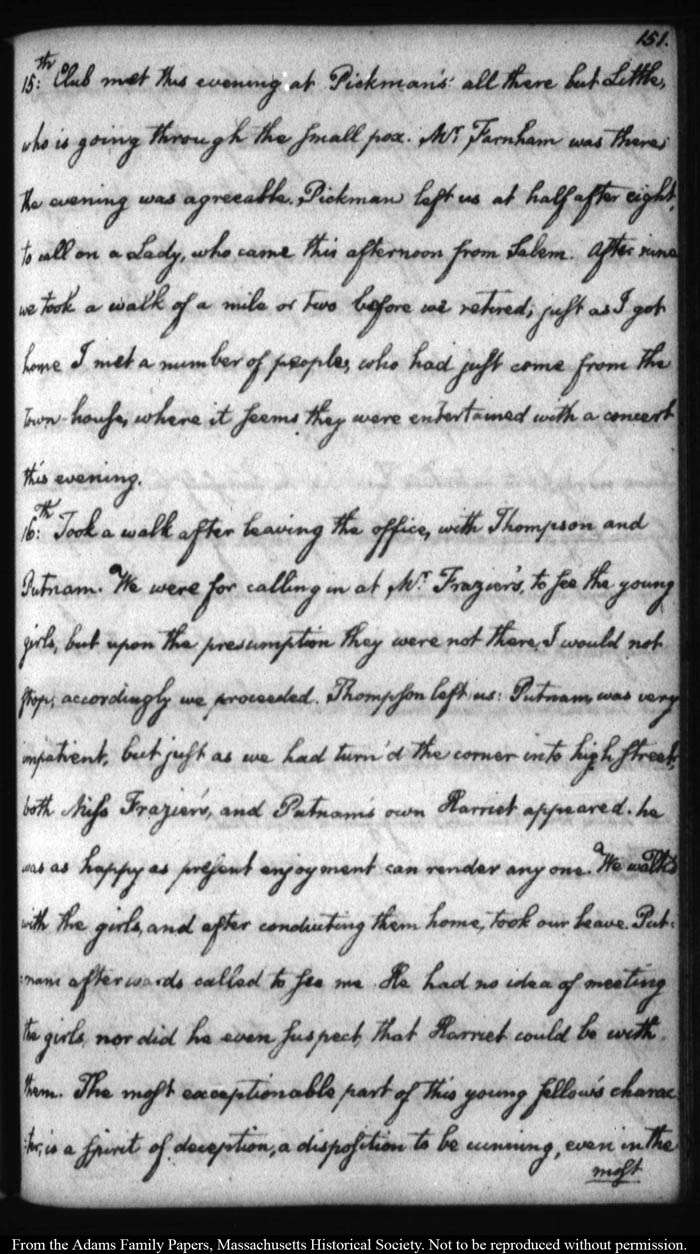 151.
15:th Club met this evening at Pickman's: all there but Little,
who is going through the small pox. Mr. Farnham was there;
the evening was agreeable. Pickman left us at half after eight,
to call on a Lady, who came this afternoon from Salem. After nine
we took a walk of a mile or two before we retired; just as I got
home I met a number of people, who had just come from the
town-house, where it seems they were entertained with a concert
this evening.
16:th Took a walk after leaving the office, with Thompson and
Putnam. We were for calling in at Mr. Frazier's, to see the young
girls, but upon the presumption they were not there, I would not
stop; accordingly we proceeded. Thompson left us: Putnam, was very
impatient, but just as we had turn'd the corner into high street,
both Miss Frazier's, and Putnam's own Harriet appeared. he
was as happy as present enjoyment can render any one. We walk'd
with the girls, and after conducting them home, took our leave. Put-
:nam afterwards called to see me. He had no idea of meeting
the girls, nor did he even suspect, that Harriet could be with
them. The most exceptionable part of this young fellow's charac
:ter, is a spirit of deception, a disposition to be cunning, even in the
most
From the Adams Family Papers, Massachusetts Historical Society. Not to be reproduced without permission.